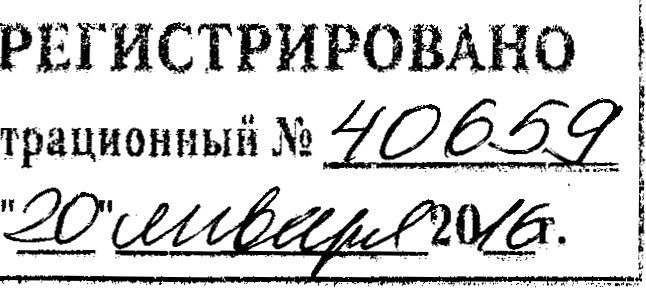 РЕГИСТРИРОВАНО
трационный № 40659
"20" января 2016г.